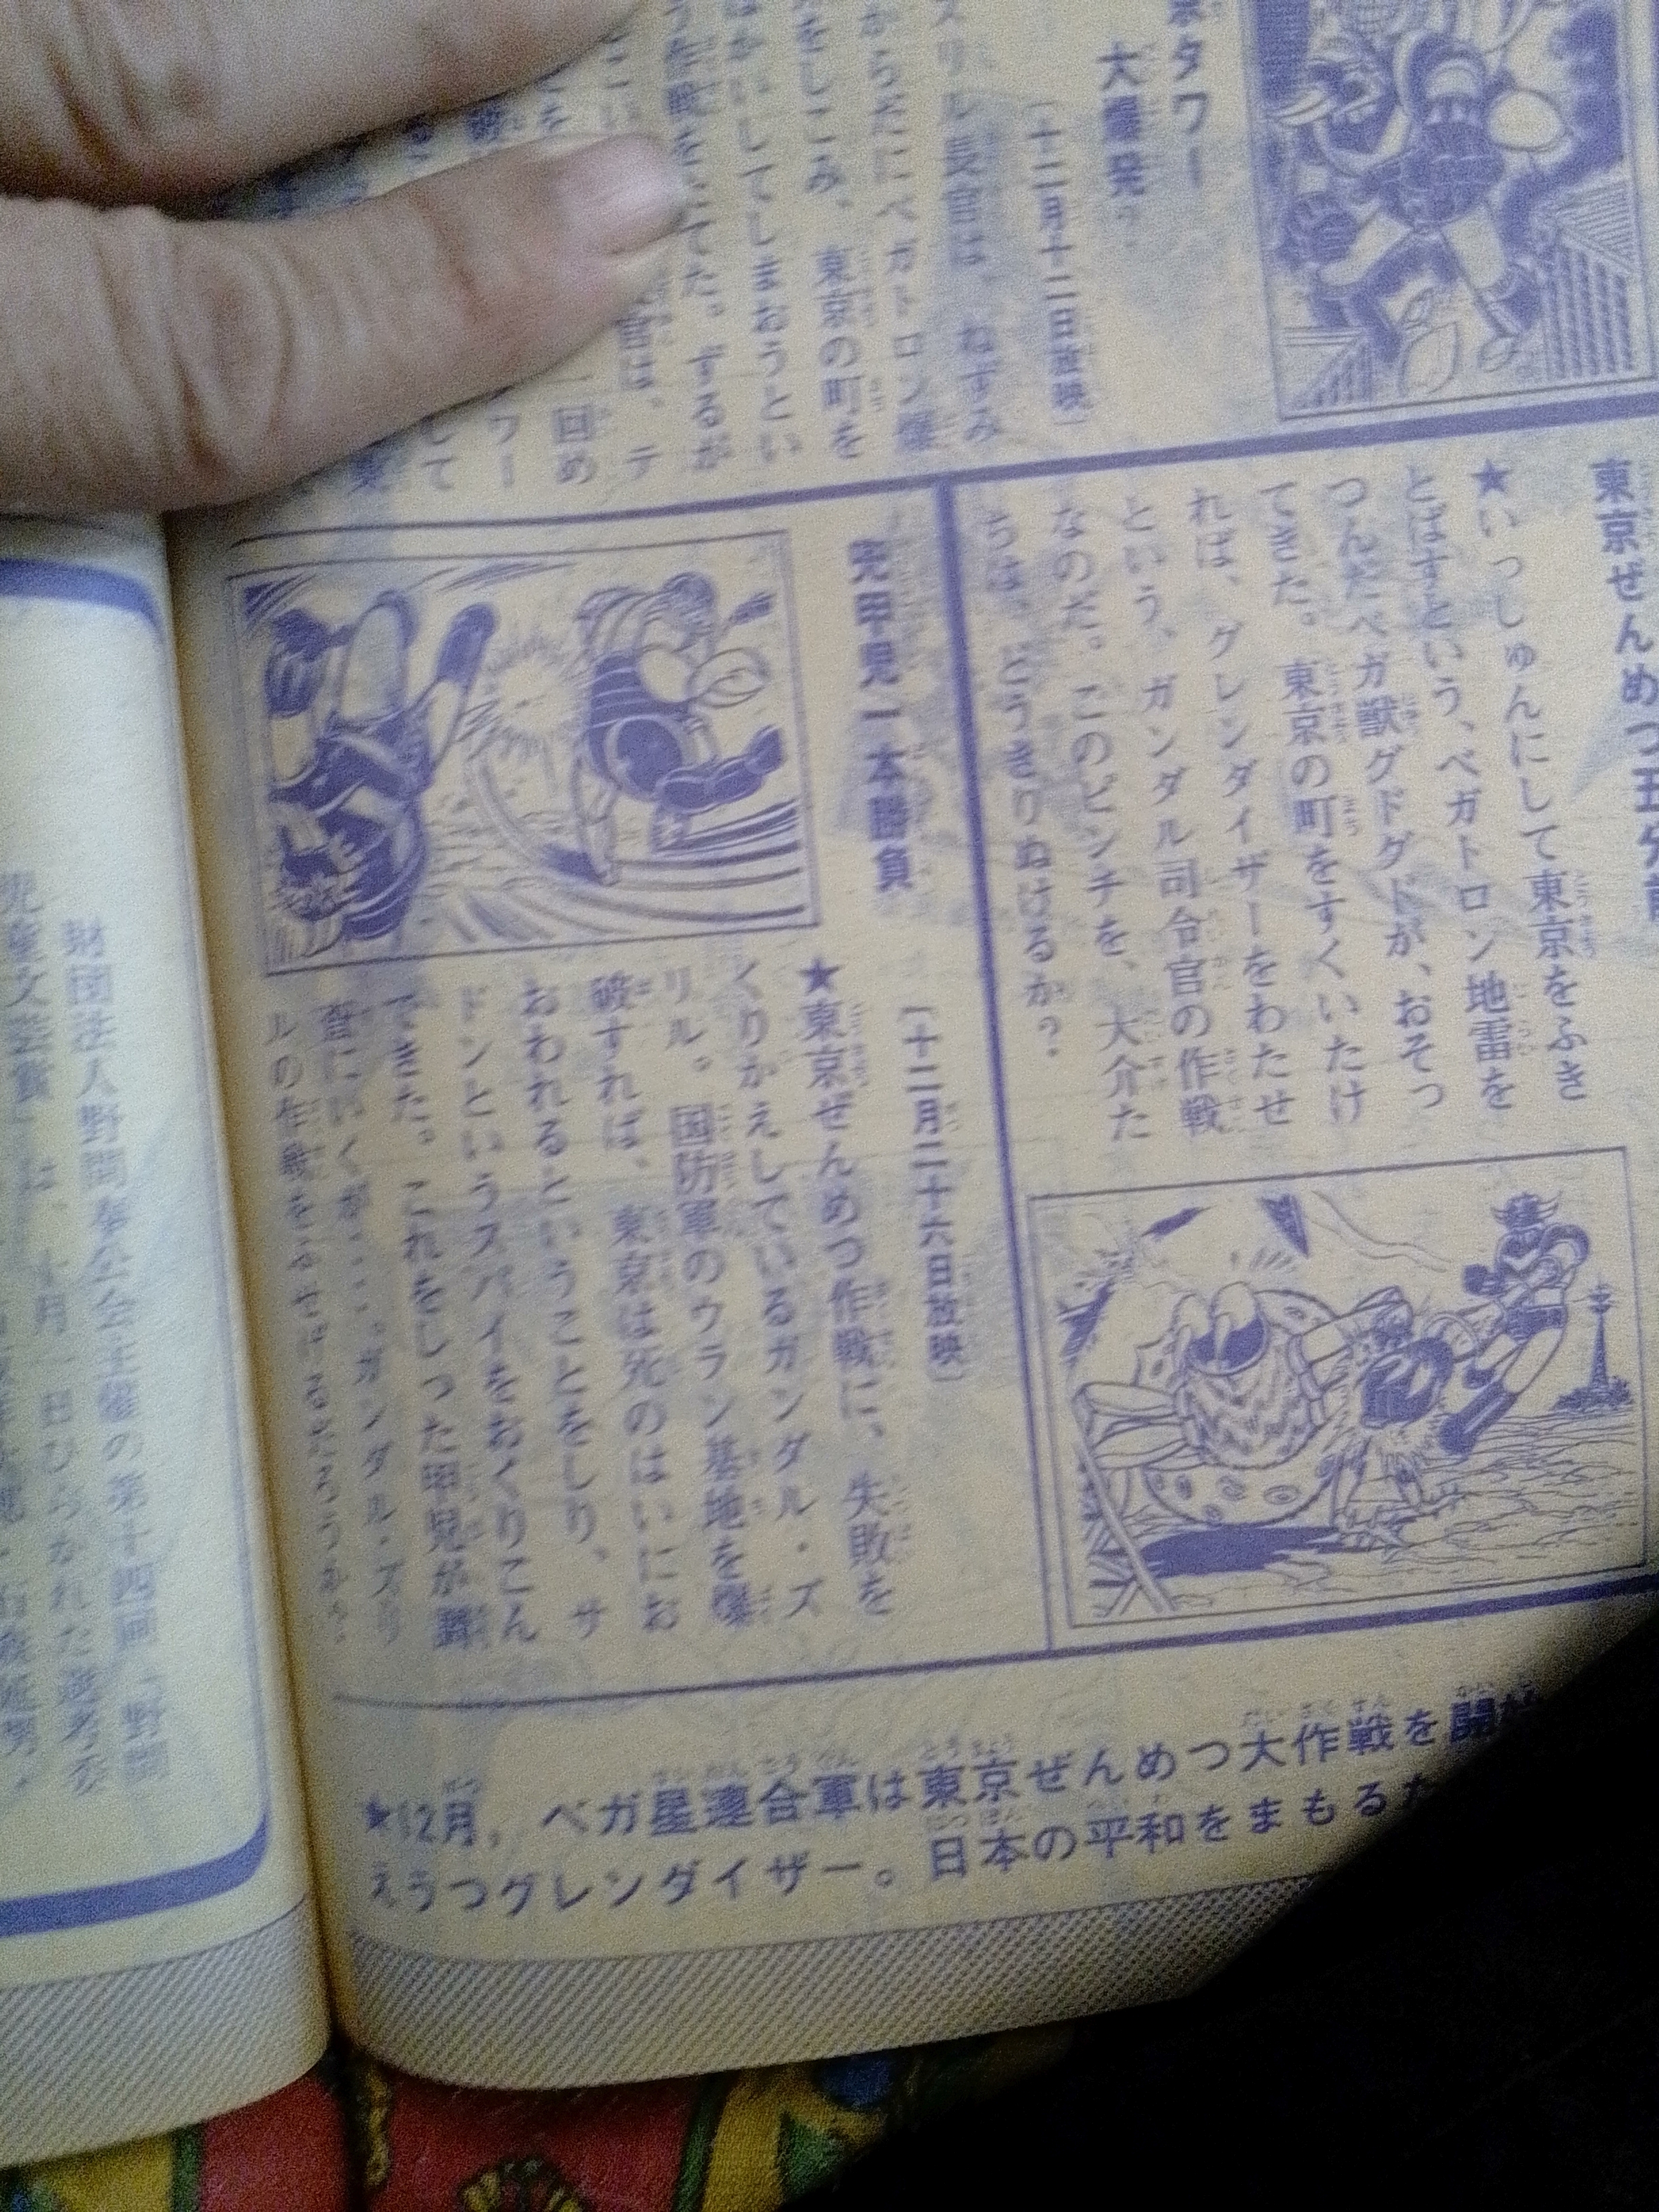 京タワー
大爆発
〔十二月十二日放映〕
ズリル長官は、ねずみ
からだにベガトロン爆
をしこみ、東京の町を
はかいしてしまおうとい
う作戦をたてた。ずるが
官は、テ
一回め
ワー
して
東京ぜんめつ五分前
★いっしゅんにして東京をふき
とばすという、ベガトロン地雷を
つんだベガ獣グドグドが、おそっ
てきた。東京の町をすくいたけ
れば、グレンダイザーをわたせ
という、ガンダル司令官の作戦
なのだ。このピンチを、大介た
ちは、どうきりぬけるか？
兜甲児一本勝負
〔十二月二十六日放映〕
★東京ぜんめつ作戦に、失敗を
くりかえしているガンダル・ズ
リル。国防軍のウラン基地を爆
破すれば、東京は死のはいにお
おわれるということをしり、サ
ドンというスパイをおくりこん
できた。これをしった甲児が調
査にいくが…。ガンダル・ズリ
ルの作戦をふせげるだろうか？
★12月，ベガ星連合軍は東京ぜんめつ大作戦を開
えうつグレンダイザー。日本の平和をまもるた
財団法人野間奉公会主催の第十四回「野間
児童文芸賞」は、十月一日ひらかれた選考委